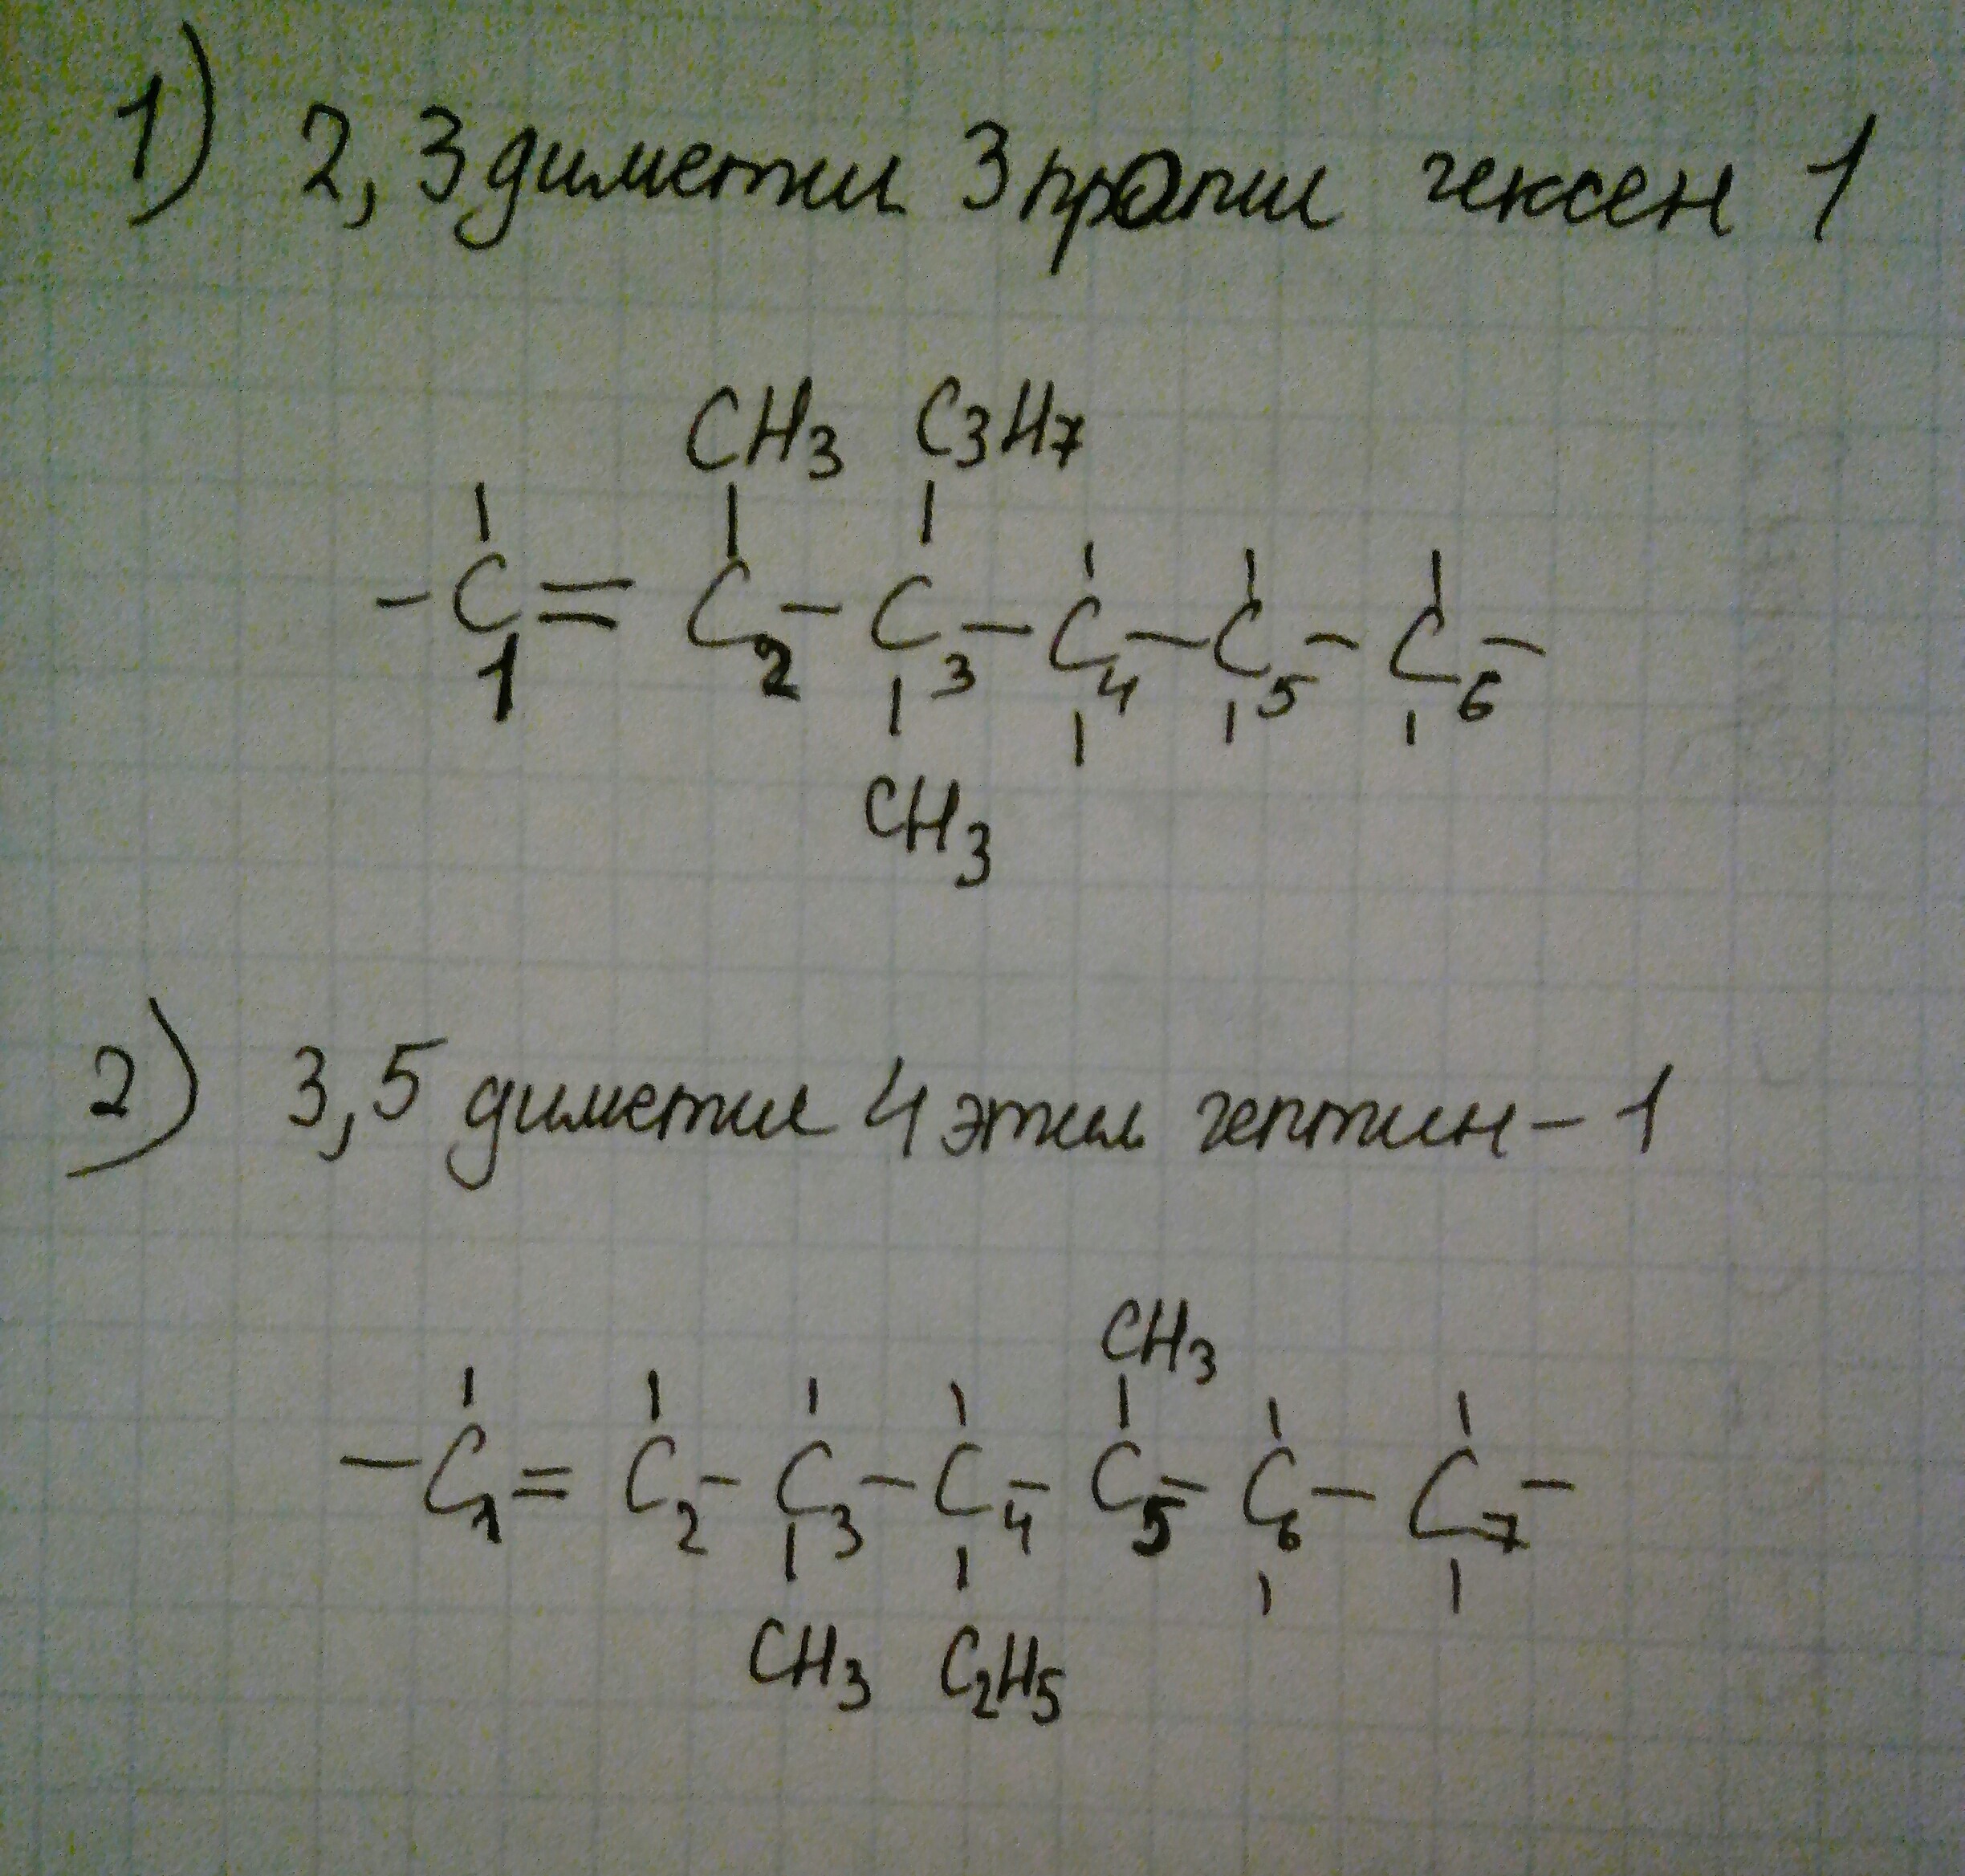 1) 2, 3 диметил 3 пропил гексен 1
CH3 C3H7
-C1=C2-C3-C4-C5-C6-
CH3
2) 3,5 диметил 4 этил гептин-1
CH3
-C1=C2-C3-C4-C5-C6-C7-
CH3 C2H5